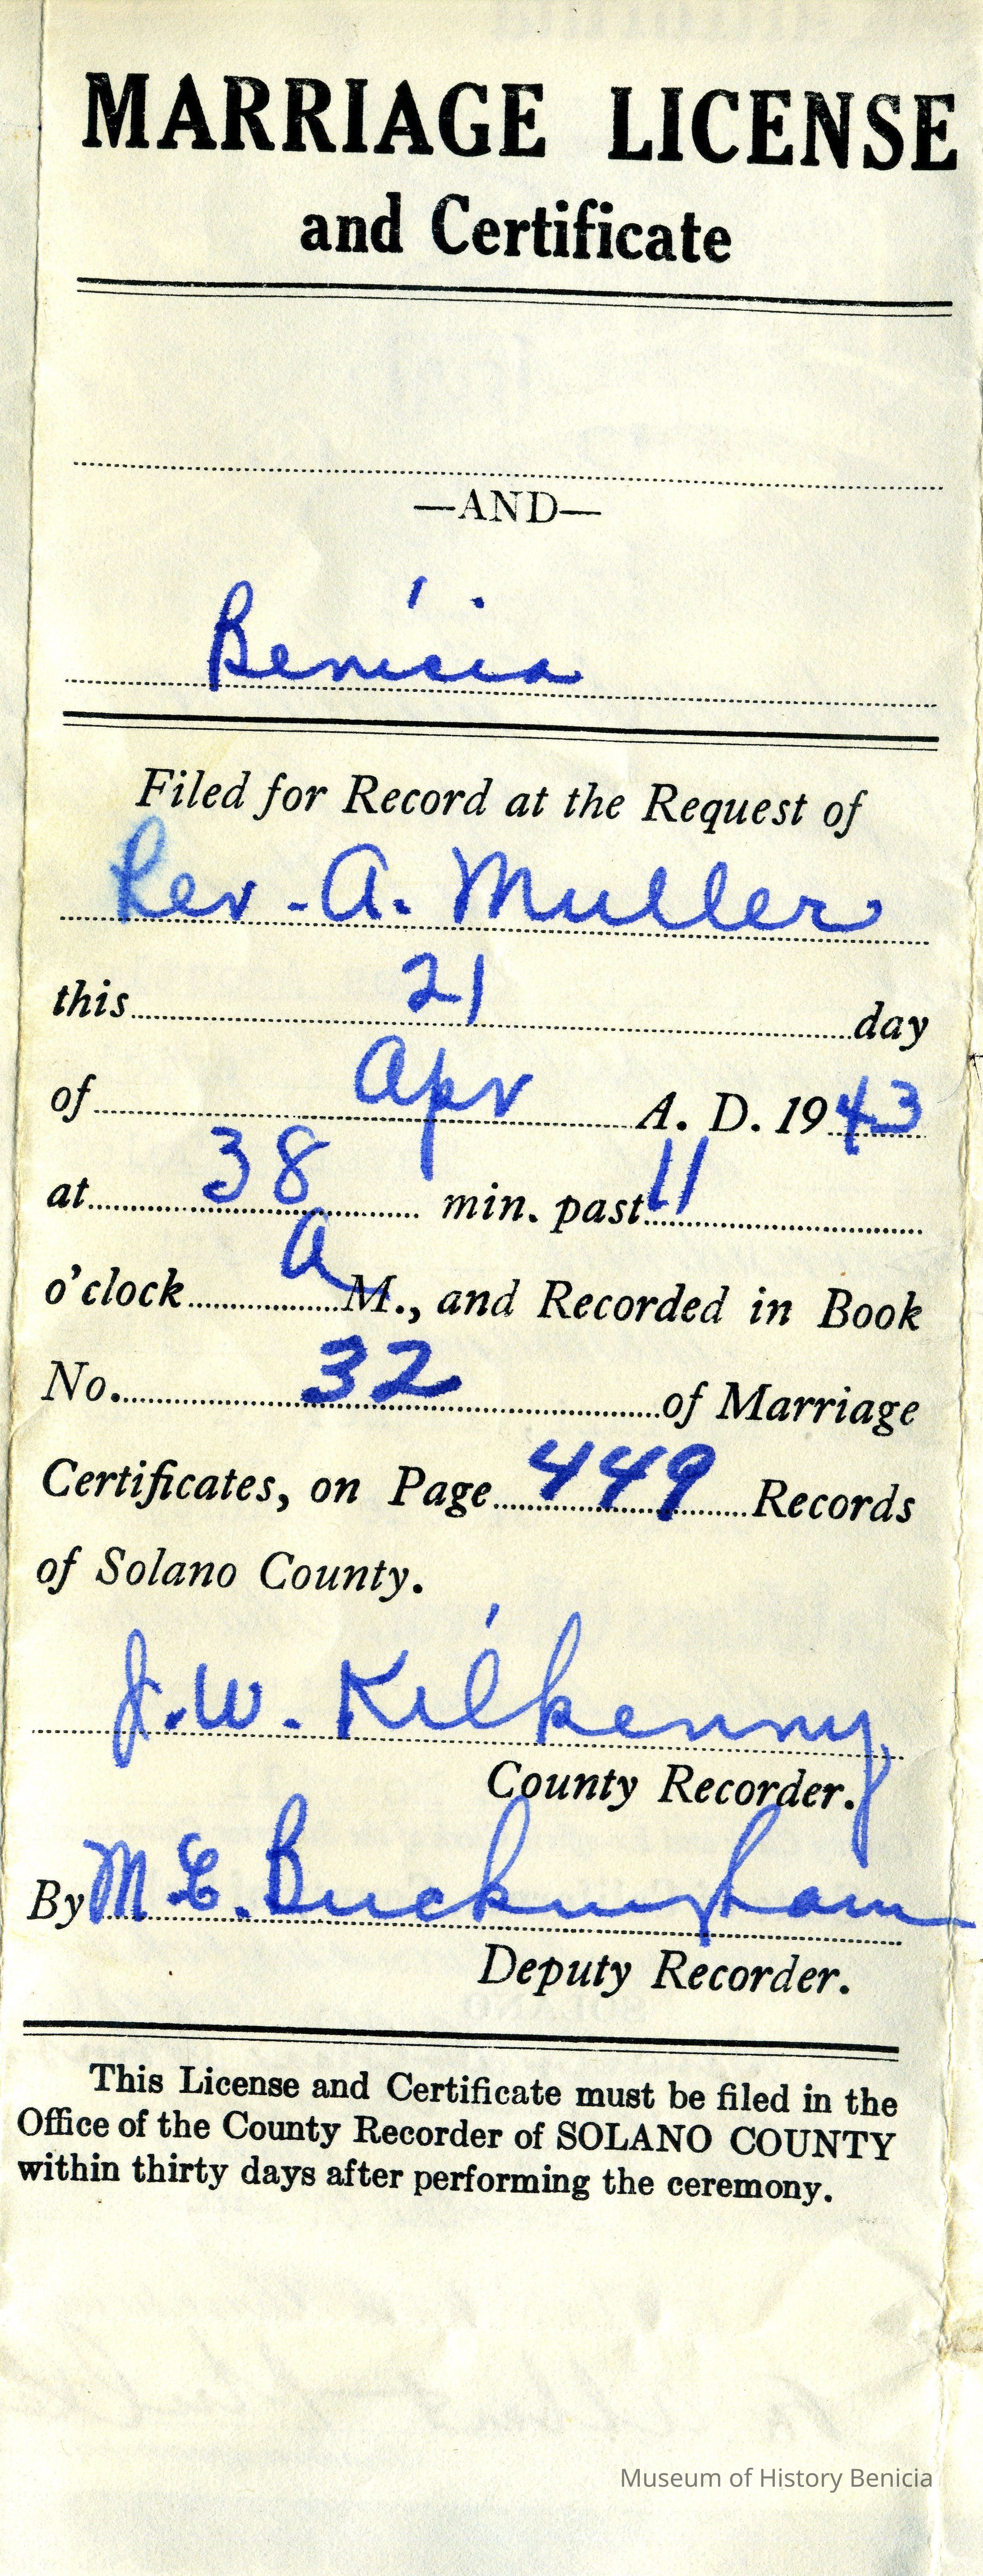 MARRIAGE LICENSE
and Certificate
—AND—
Benicia
Filed for Record at the Request of
Rev. A. Muller
this 21 day
of Apr A. D. 1943
at 38 min. past 11
o'clock A M., and Recorded in Book
No. 32 of Marriage
Certificates, on Page 449 Records
of Solano County.
J. W. Kilkenny
County Recorder.
By M. E. Buckingham
Deputy Recorder.
This License and Certificate must be filed in the
Office of the County Recorder of SOLANO COUNTY
within thirty days after performing the ceremony.
Museum of History Benicia